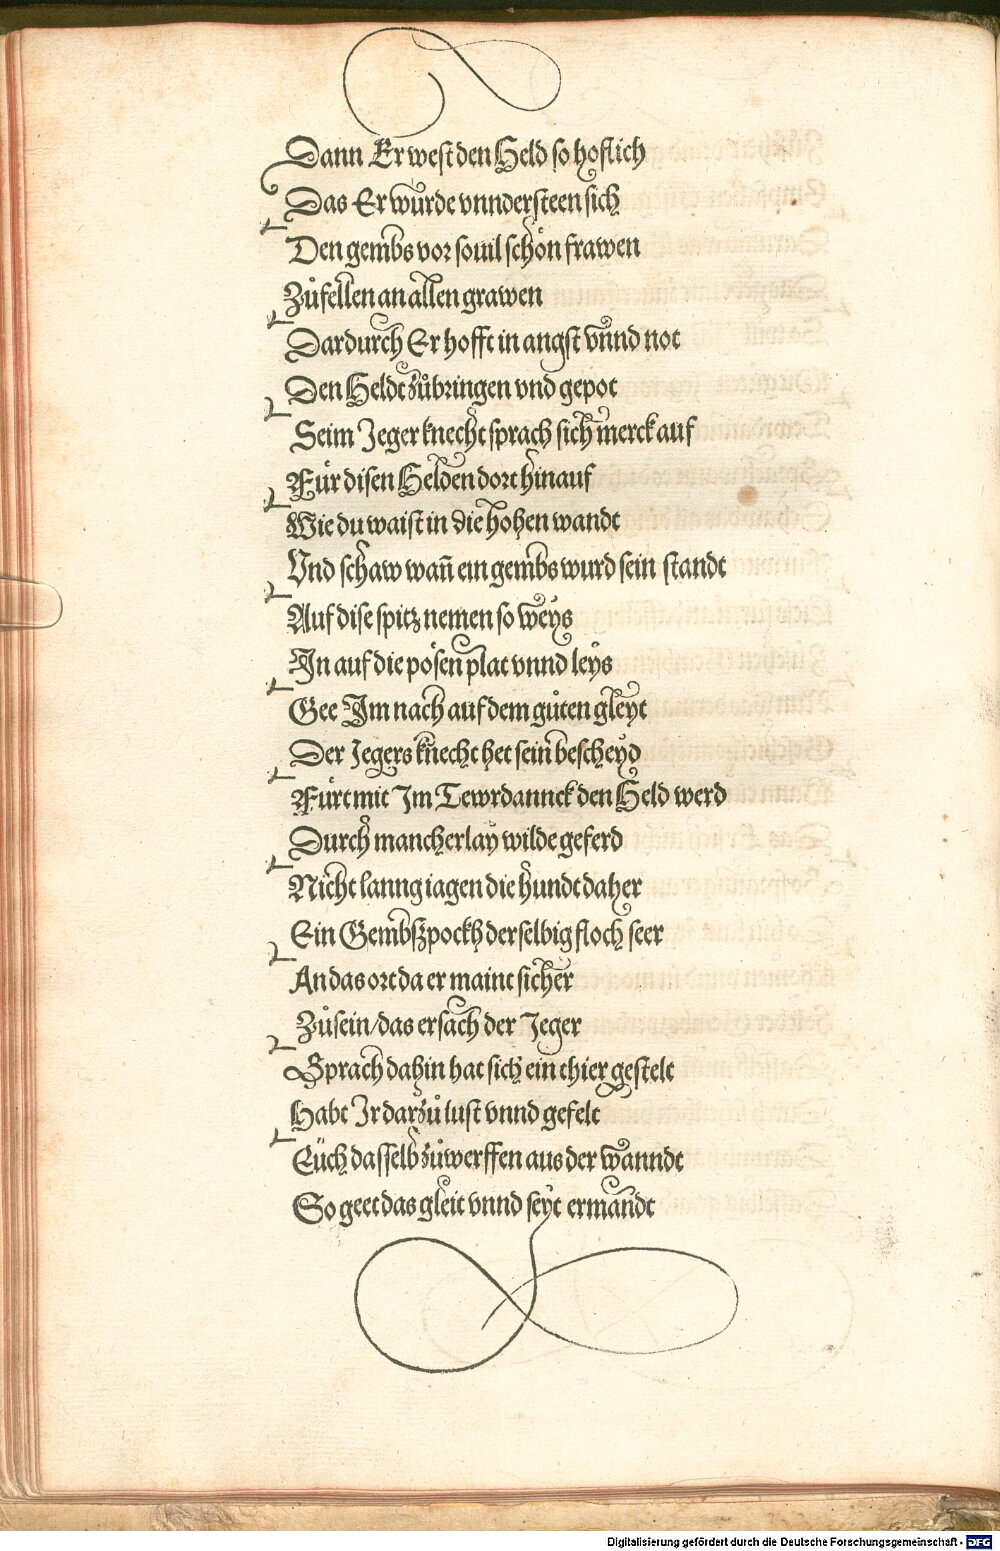 Dann Er west den Held so hoflich
Das Er wůrde vnndersteen sich
Den gembs vor souil schön frawen
Zůfellen an allen grawen
Dardurch Er hofft in angst vnnd not
Den Heldt zůbringen vnd gepot
Seim Jeger knecht sprach sich merck auf
Für disen Helden dort hinauf
Wie du waist in die hohen wandt
Vnd schaw wañ ein gembs wurd sein standt
Auf dise spitz nemen so weys
In auf die pösen plat vnnd leys
Gee Im nach auf dem gůten gleyt
Der Jegers knecht het sein bescheyd
Fürt mit Im Tewrdannck den Held werd
Durch mancherlay wilde geferd
Nicht lanng iagen die hundt daher
Ein Gembsspockh derselbig floch seer
An das ort da er maint sicher
Zůsein/das ersach der Jeger
Sprach dahin hat sich ein thier gestelt
Habt Ir darzů lust vnnd gefelt
Eüch dasselb zůwerffen aus der wanndt
So geet das gleit vnnd seyt ermandt
Digitalisierung gefördert durch die Deutsche Forschungsgemeinschaft - DFG